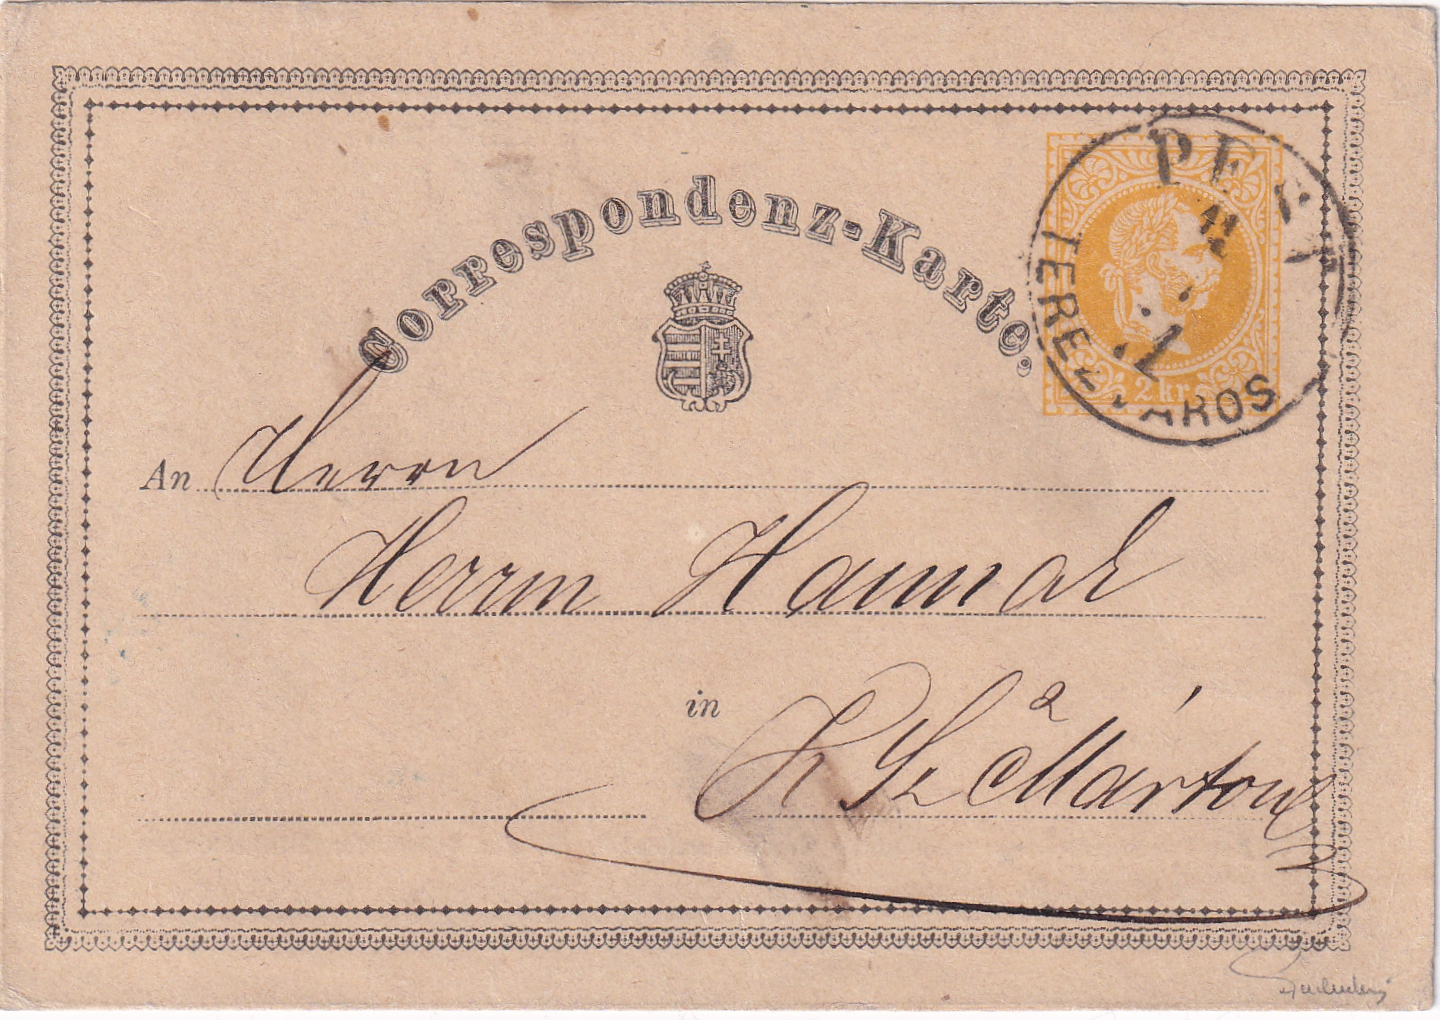 Correspondenz-Karte.
PEST
TEREZVAROS
2 kr
An Herrn
Herrm Hannak
in K Sz Márton